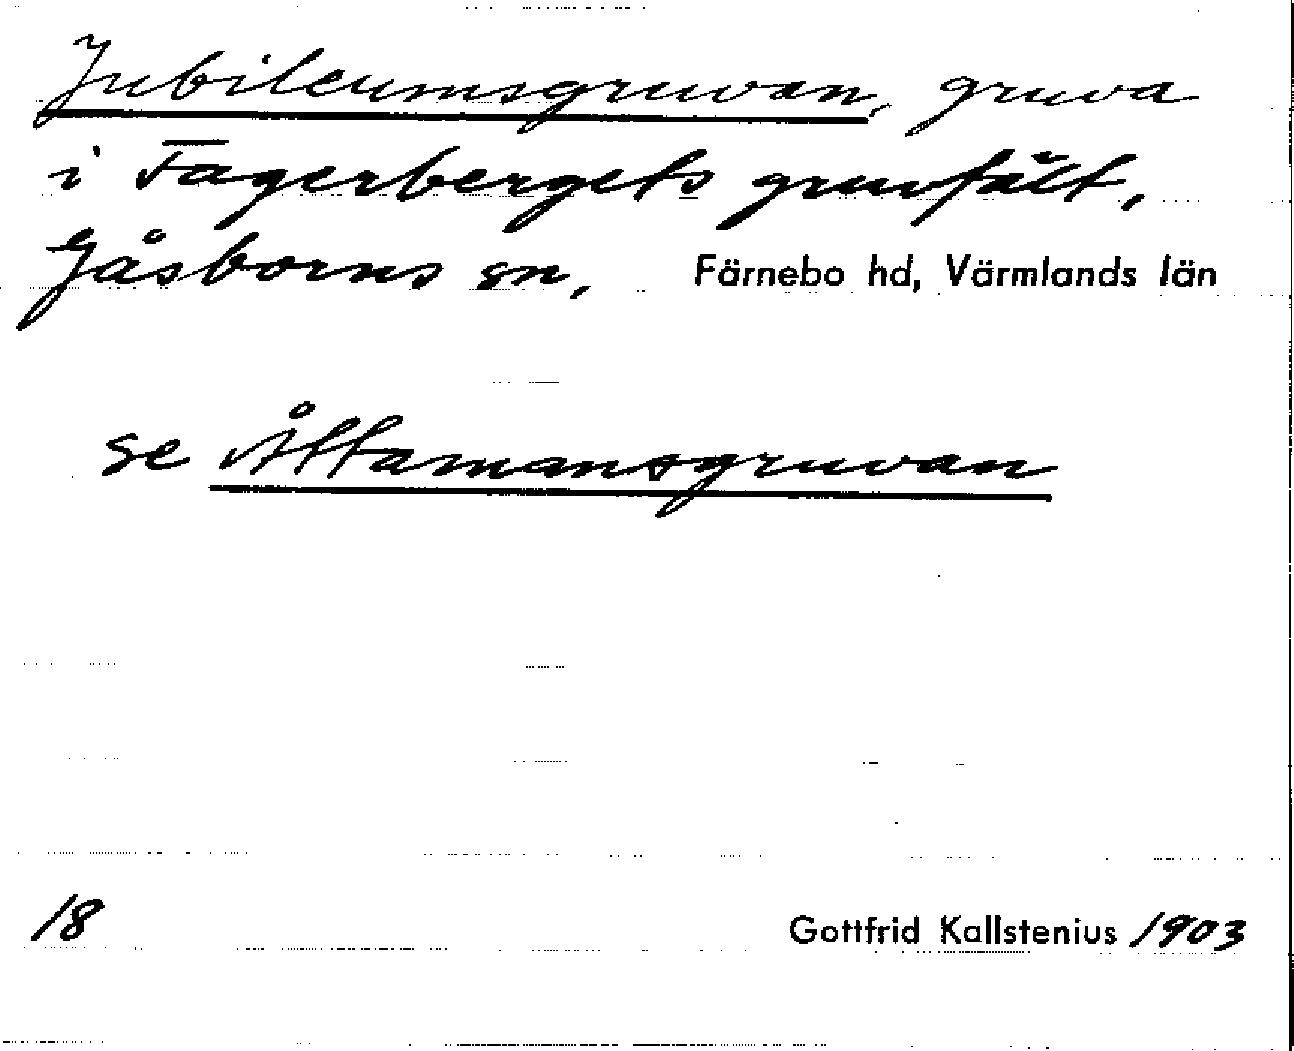 Jubileumsgruvan, gruva
i Fagerbergets gruvfält,
Gåsborns sn, Färnebo hd, Värmlands län
se Åttamansgruvan
18 Gottfrid Kallstenius 1903